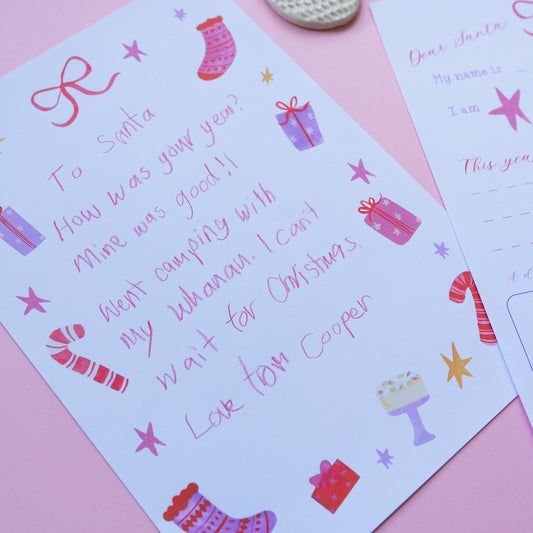 To Santa
How was your year?
Mine was good! I
went camping with
my whanau. I can't
wait for Christmas.
Love from Cooper
Dear Santa
My name is
I am
This yea